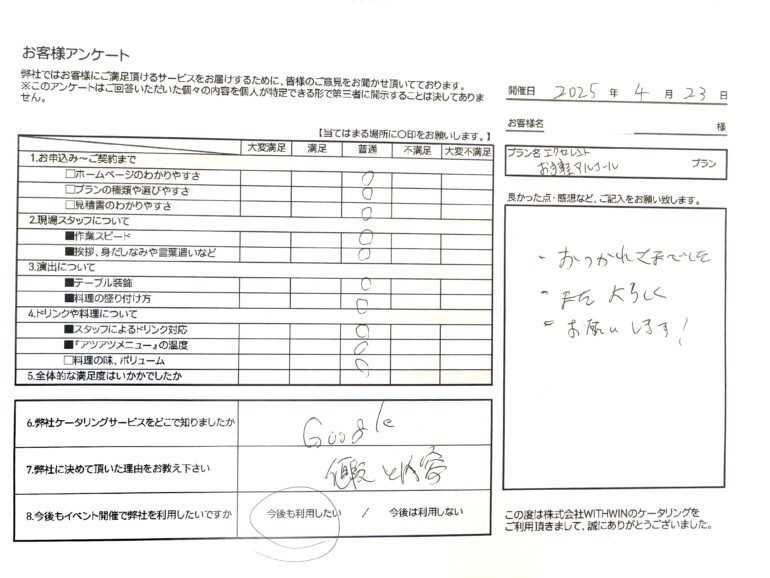 お客様アンケート
弊社ではお客様にご満足頂けるサービスをお届けするために、皆様のご意見をお聞かせ頂いてております。
※このアンケートはご回答いただいた個々の内容を個人が特定できる形で第三者に開示することは決してありません。
開催日 2025 年 4 月 23 日
お客様名 様
プラン名 エクセレント
お手軽アルコール プラン
【当てはまる場所に○印をお願いします。】
大変満足 満足 普通 不満足 大変不満足
1.お申込み～ご契約まで
□ホームページのわかりやすさ ○
□プランの種類や選びやすさ ○
□見積書のわかりやすさ ○
2.現場スタッフについて
■作業スピード ○
■挨拶、身だしなみや言葉遣いなど ○
3.演出について
■テーブル装飾 ○
■料理の盛り付け方 ○
4.ドリンクや料理について
■スタッフによるドリンク対応 ○
■『アツアツメニュー』の温度 ○
□料理の味、ボリューム ○
5.全体的な満足度はいかかでしたか
6.弊社ケータリングサービスをどこで知りましたか Google
7.弊社に決めて頂いた理由をお教え下さい 値段と内容
8.今後もイベント開催で弊社を利用したいですか 今後も利用したい / 今後は利用しない
良かった点・感想など、ご記入をお願い致します。
・おつかれさまでした
・またよろしく
・お願いします!
この度は株式会社WITHWINのケータリングを
ご利用頂きまして、誠にありがとうございました。